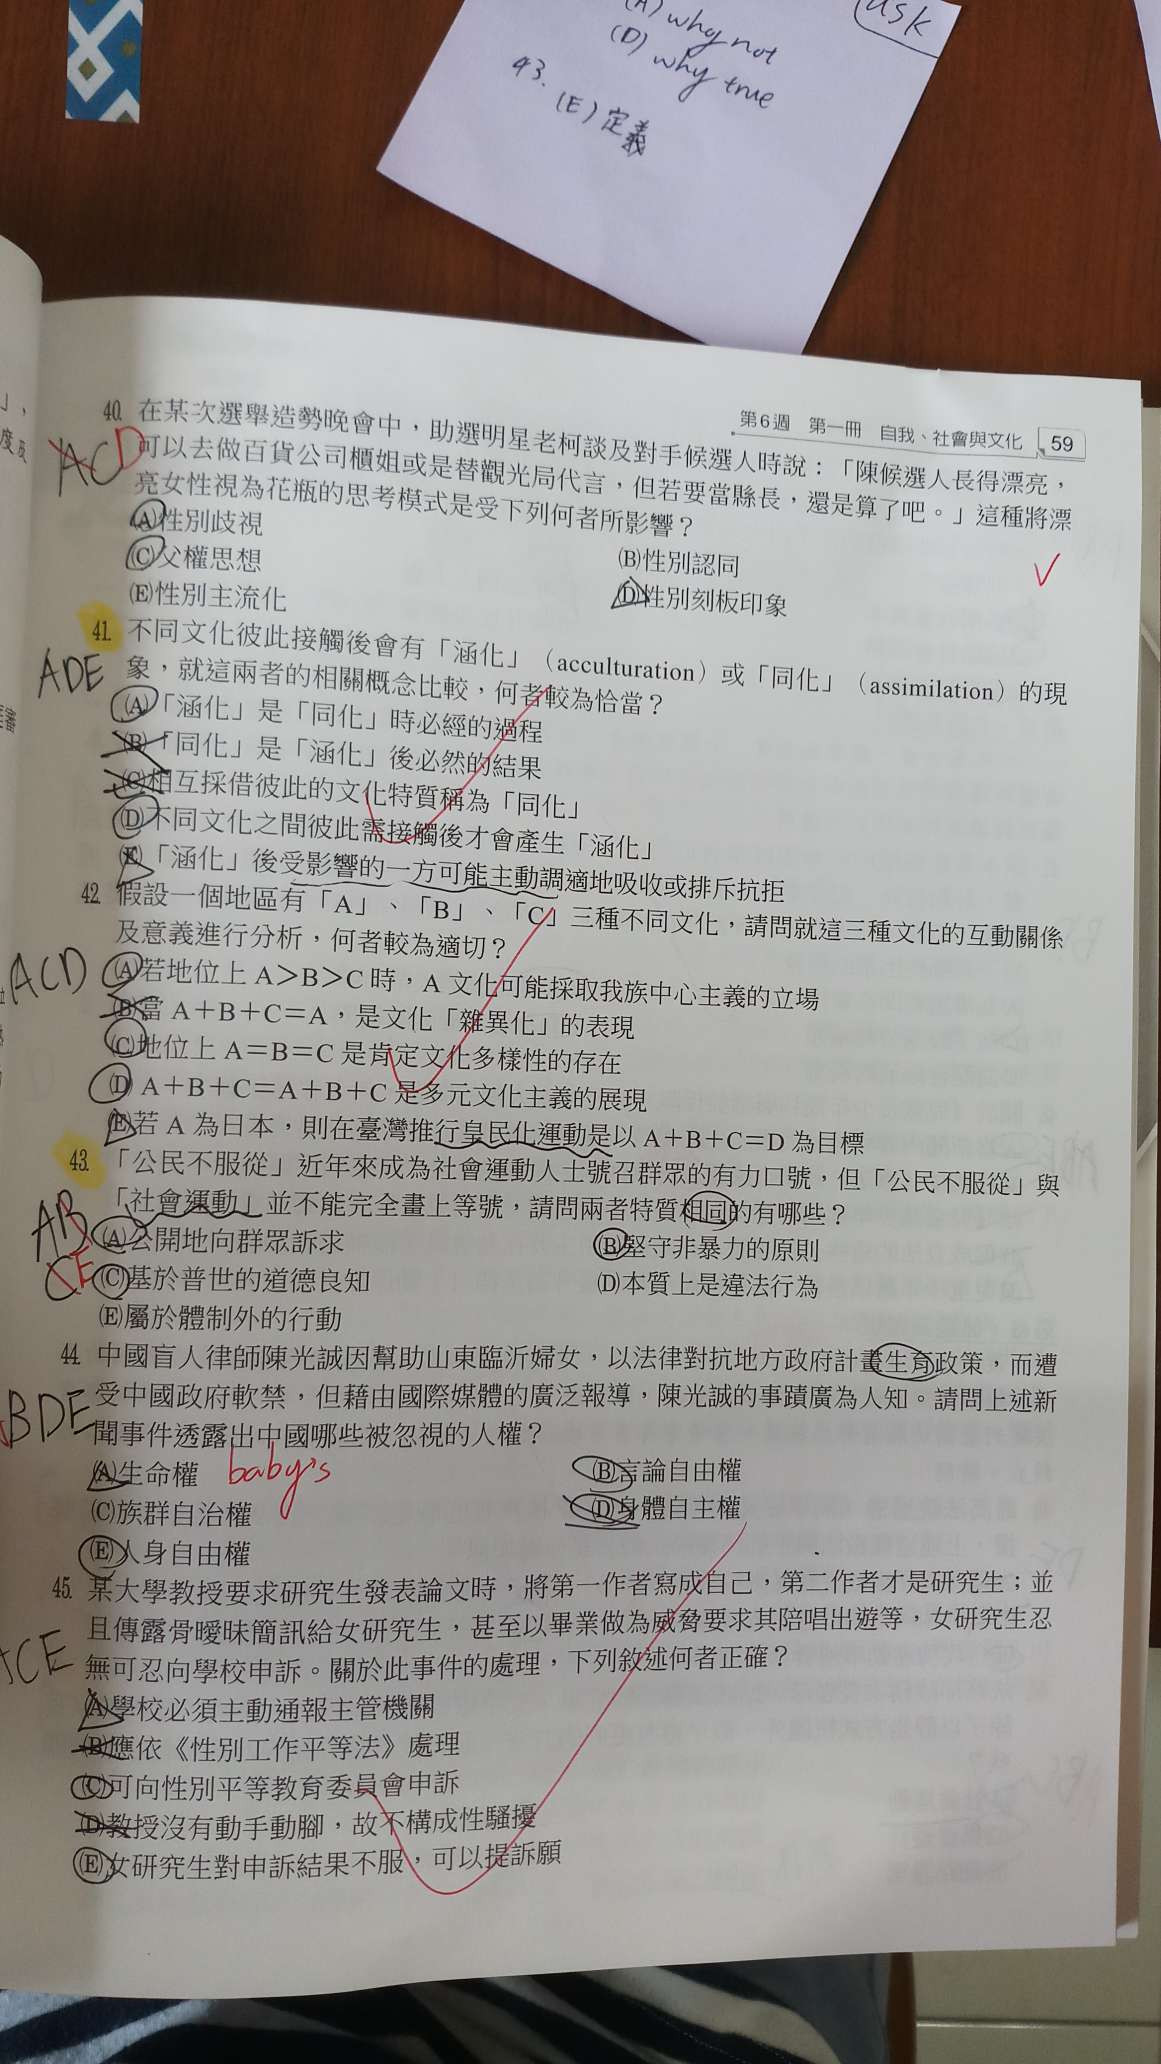 ask
(A) why not
(D) why true
43.
(E) 定義
第6週 第一冊 自我、社會與文化 59
40. 在某次選舉造勢晚會中，助選明星老柯談及對手候選人時說：「陳候選人長得漂亮，
可以去做百貨公司櫃姐或是替觀光局代言，但若要當縣長，還是算了吧。」這種將漂
亮女性視為花瓶的思考模式是受下列何者所影響？
ACD
(A)性別歧視
(B)性別認同
(C)父權思想
(D)性別刻板印象
(E)性別主流化
41. 不同文化彼此接觸後會有「涵化」（acculturation）或「同化」（assimilation）的現
象，就這兩者的相關概念比較，何者較為恰當？
ADE
(A)「涵化」是「同化」時必經的過程
(B)「同化」是「涵化」後必然的結果
(C)相互採借彼此的文化特質稱為「同化」
(D)不同文化之間彼此需接觸後才會產生「涵化」
(E)「涵化」後受影響的一方可能主動調適地吸收或排斥抗拒
42. 假設一個地區有「A」、「B」、「C」三種不同文化，請問就這三種文化的互動關係
及意義進行分析，何者較為適切？
ACD
(A)若地位上 A＞B＞C 時，A 文化可能採取我族中心主義的立場
(B)當 A＋B＋C＝A，是文化「雜異化」的表現
(C)地位上 A＝B＝C 是肯定文化多樣性的存在
(D) A＋B＋C＝A＋B＋C 是多元文化主義的展現
(E)若 A 為日本，則在臺灣推行皇民化運動是以 A＋B＋C＝D 為目標
43. 「公民不服從」近年來成為社會運動人士號召群眾的有力口號，但「公民不服從」與
「社會運動」並不能完全畫上等號，請問兩者特質相同的有哪些？
AB
CE
(A)公開地向群眾訴求
(B)堅守非暴力的原則
(C)基於普世的道德良知
(D)本質上是違法行為
(E)屬於體制外的行動
44. 中國盲人律師陳光誠因幫助山東臨沂婦女，以法律對抗地方政府計畫生育政策，而遭
受中國政府軟禁，但藉由國際媒體的廣泛報導，陳光誠的事蹟廣為人知。請問上述新
聞事件透露出中國哪些被忽視的人權？
BDE
(A)生命權 baby's
(B)言論自由權
(C)族群自治權
(D)身體自主權
(E)人身自由權
45. 某大學教授要求研究生發表論文時，將第一作者寫成自己，第二作者才是研究生；並
且傳露骨曖昧簡訊給女研究生，甚至以畢業做為威脅要求其陪唱出遊等，女研究生忍
無可忍向學校申訴。關於此事件的處理，下列敘述何者正確？
ACE
(A)學校必須主動通報主管機關
(B)應依《性別工作平等法》處理
(C)可向性別平等教育委員會申訴
(D)教授沒有動手動腳，故不構成性騷擾
(E)女研究生對申訴結果不服，可以提訴願